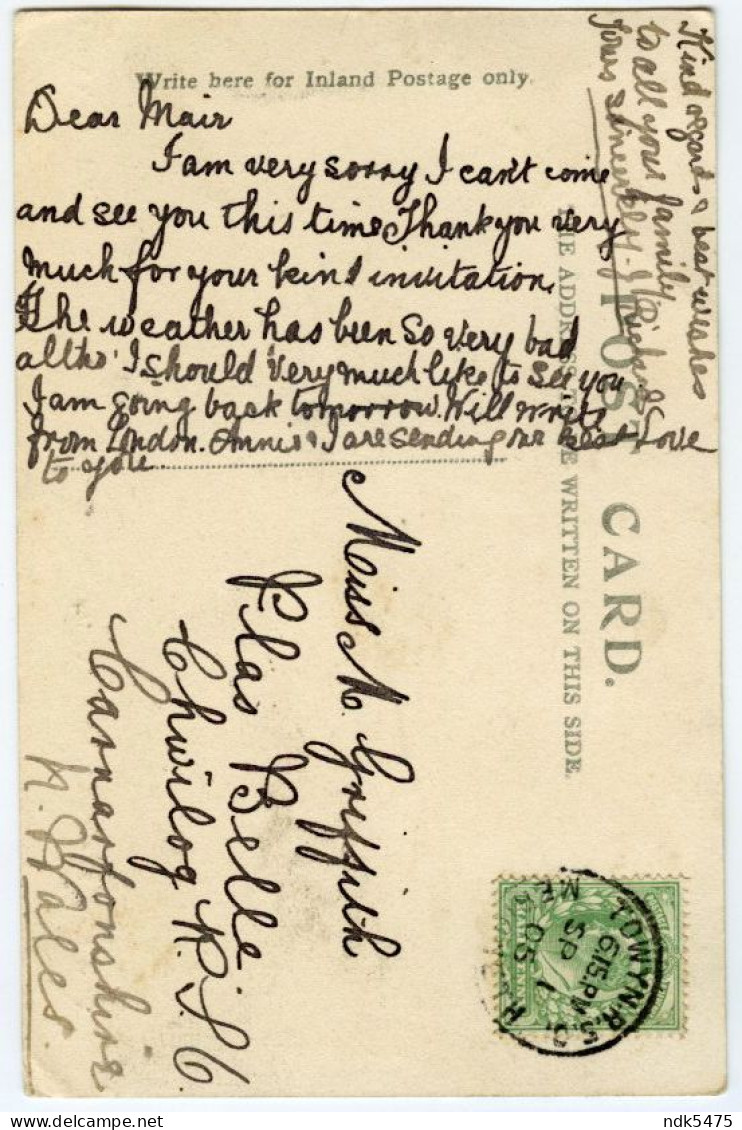 Write here for Inland Postage only.
Dear Mair
I am very sorry I can't come
and see you this time Thank you very
much for your kind invitation.
The weather has been so very bad
altho' I should very much like to see you
I am going back tomorrow. Will write
from London. Annie & I are sending our best Love
to you.
Kind regards & best wishes
to all your family
Yours sincerely
POST CARD.
THE ADDRESS TO BE WRITTEN ON THIS SIDE.
Miss M. Griffith
Plas Belle
Chwilog R.S.O.
Carnarfonshire
N. Wales.
TOWYN.R.S.O.
6.15.PM
SP 1
05
ME
ndk5475